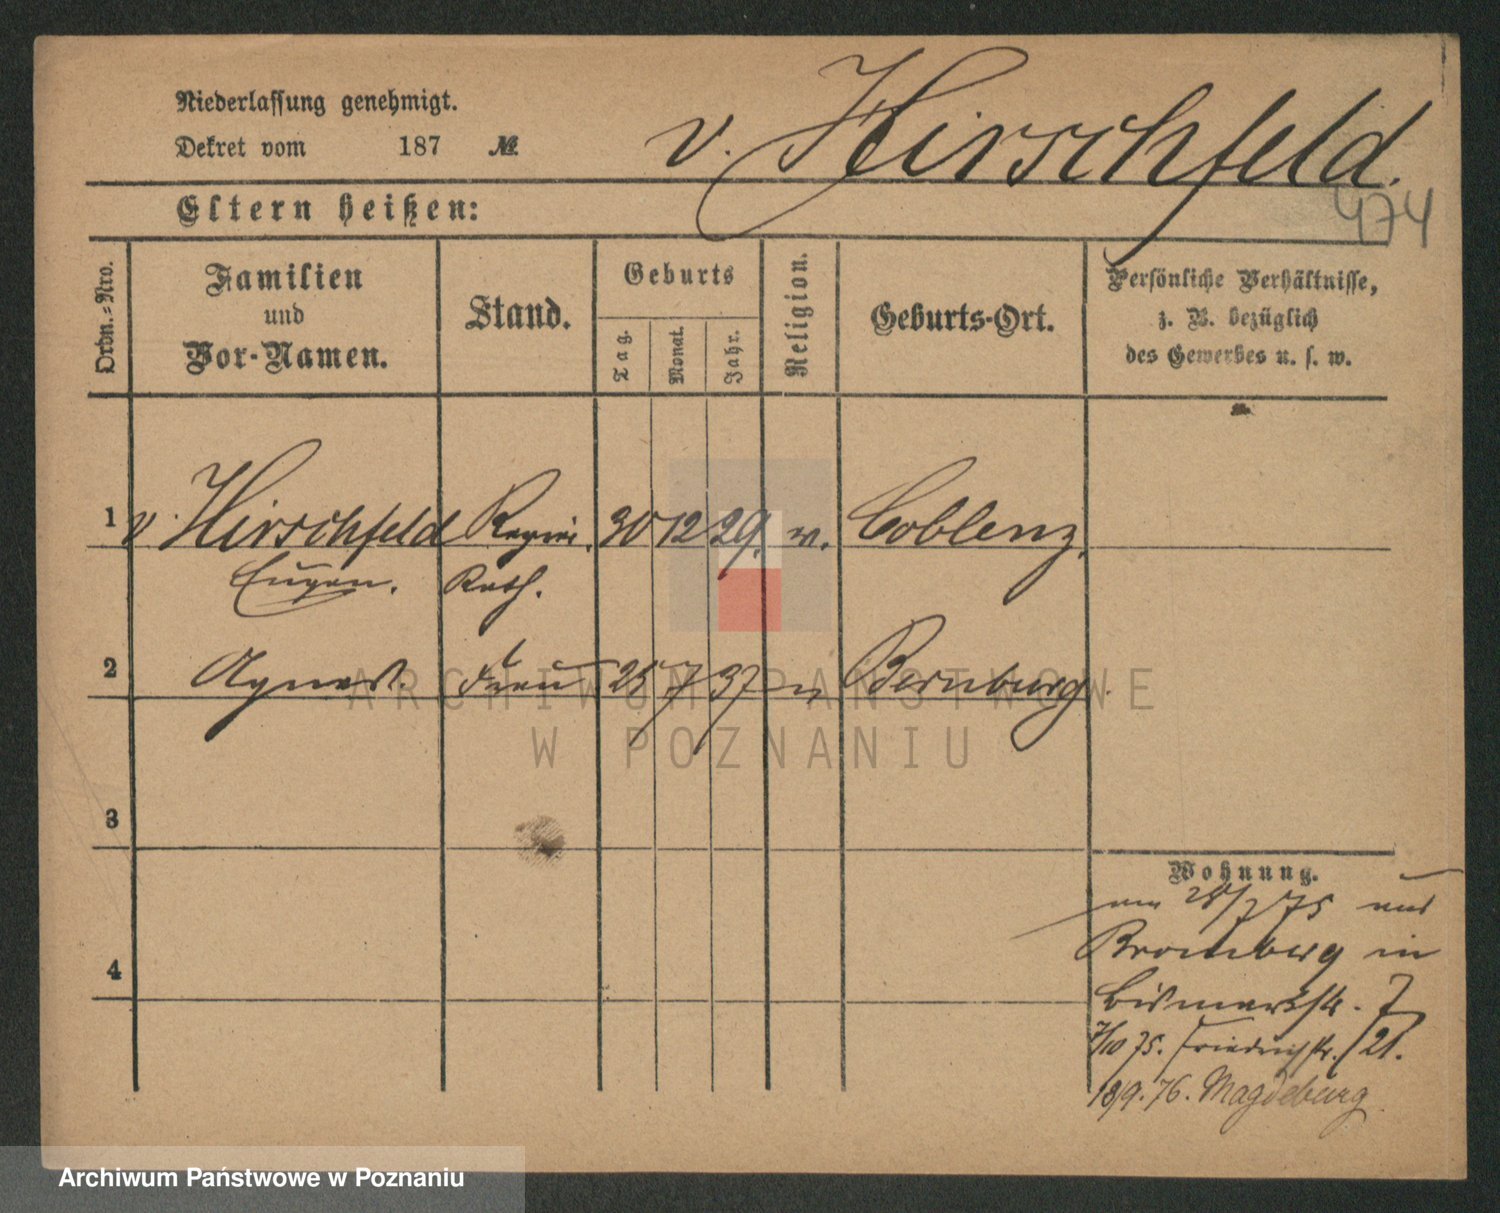 Niederlassung genehmigt.
Dekret vom 187 №
v. Hirschfeld.
474
Eltern heißen:
Ordn.-Nro.
Familien
und
Vor-Namen.
Stand.
Geburts
Tag.
Monat.
Jahr.
Religion.
Geburts-Ort.
Persönliche Verhältnisse,
z. B. bezüglich
des Gewerbes u. s. w.
1 v Hirschfeld 30 12 29. Coblenz.
Eugen. Rath.
2 Agnes. Frau 25 7 37 Bernburg.
ARCHIWUM PAŃSTWOWE
W POZNANIU
3
4
Wohnung.
75 aus
Bromberg in
Bismarckstr. 7
7/10 75. Friedrichstr. 21.
18/9. 76. Magdeburg
Archiwum Państwowe w Poznaniu